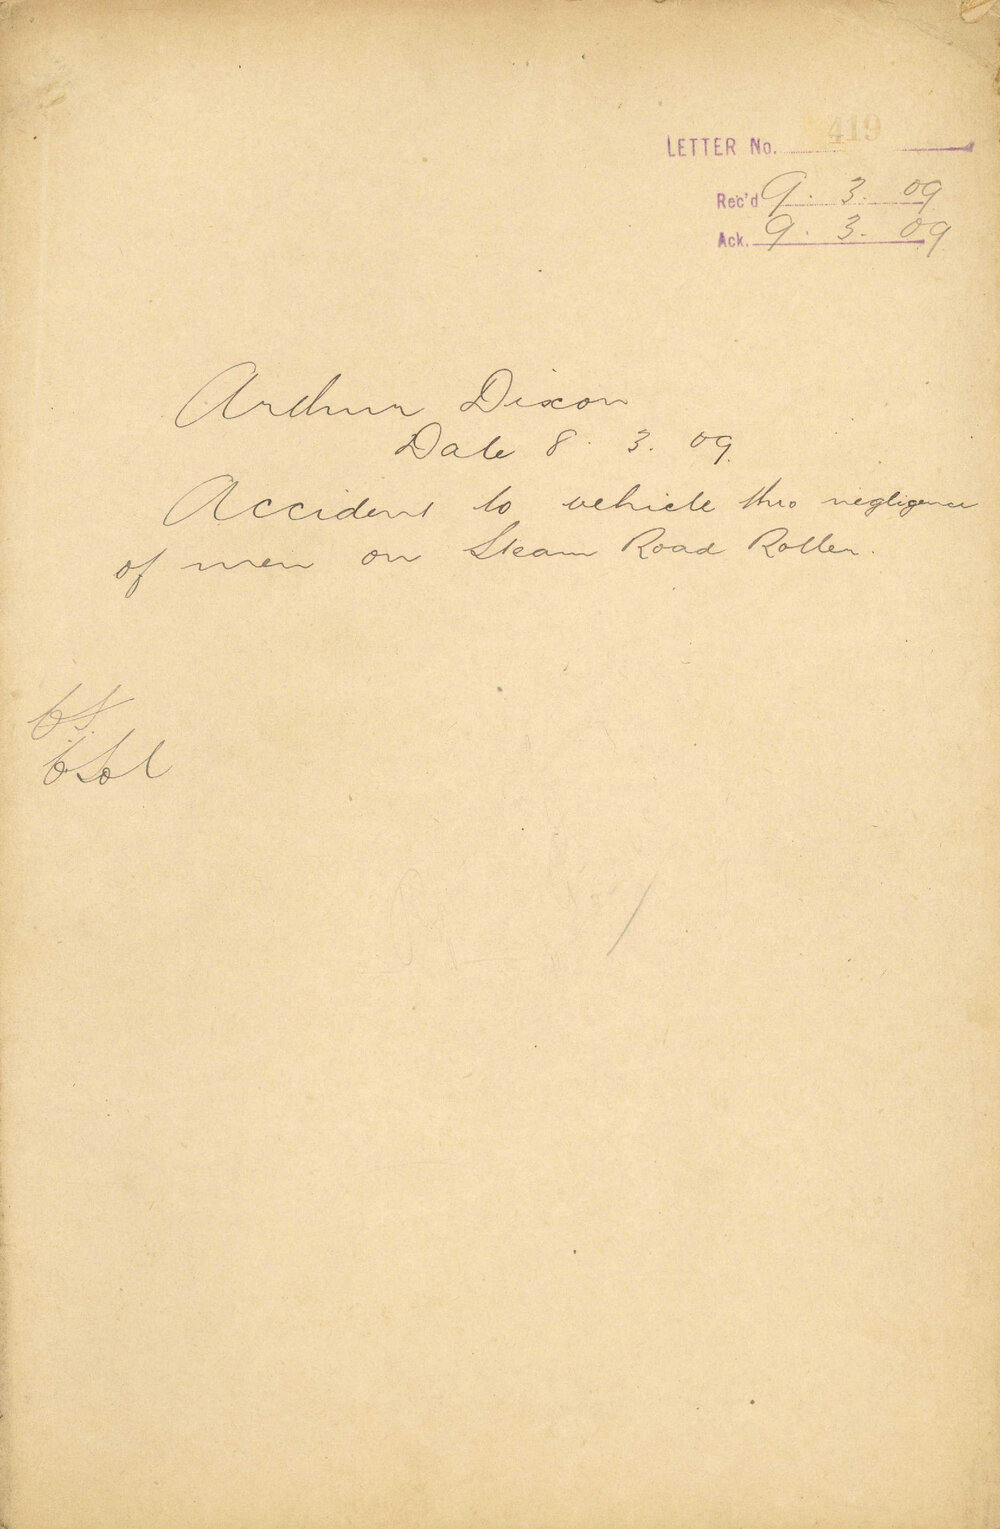 LETTER No. 419
Rec'd 9. 3. 09
Ack. 9. 3. 09
Arthur Dixon
Date 8. 3. 09.
Accident to vehicle thro negligence
of men on Steam Road Roller.
CS.
CSol